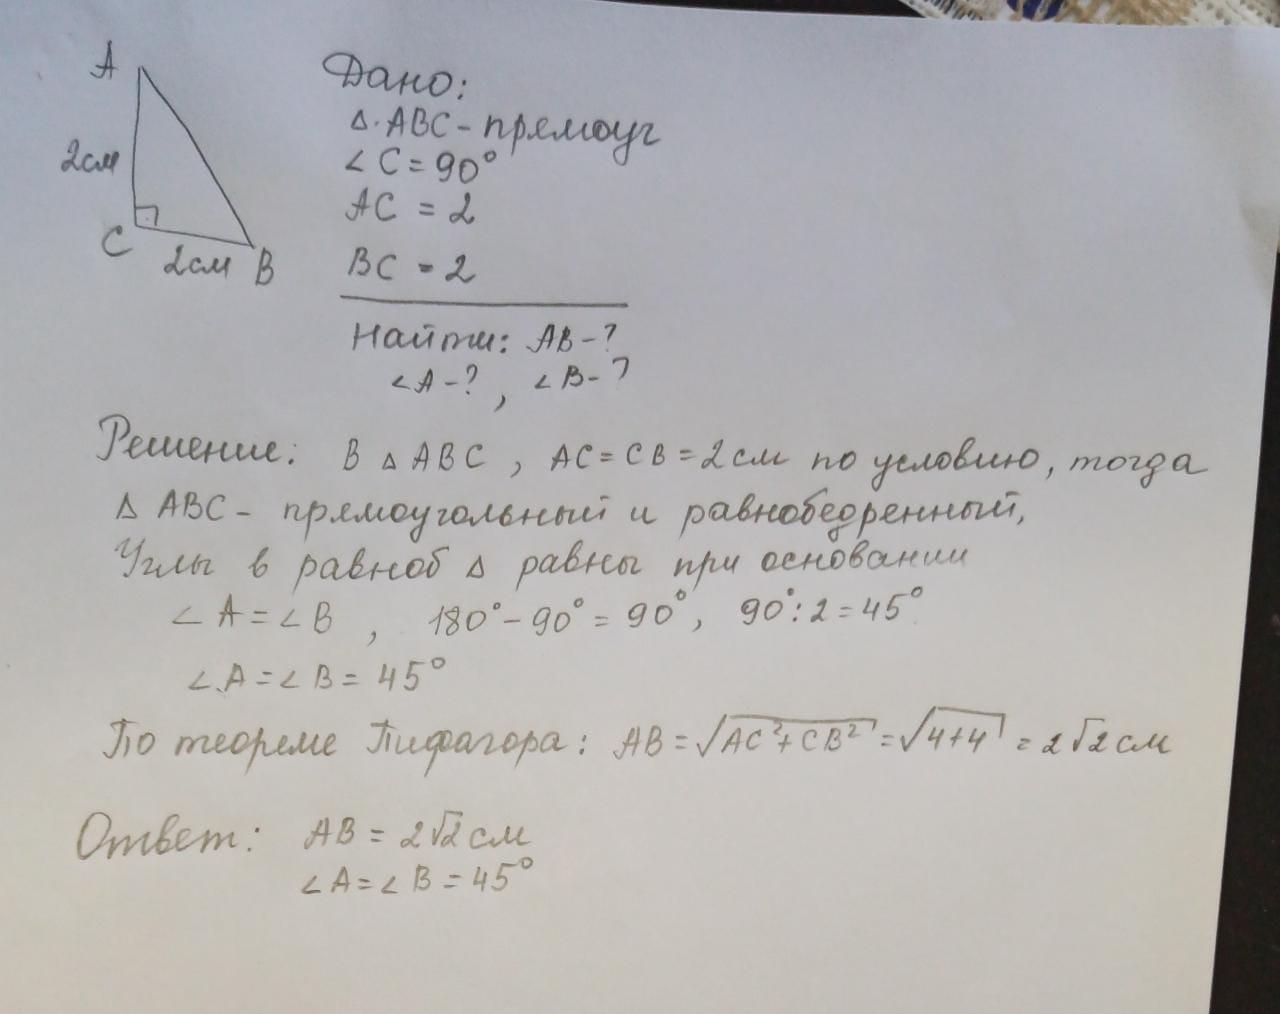 A
2см
C
2см B
Дано:
Δ ABC - прямоуг
∠ C = 90°
AC = 2
BC = 2
Найти: AB - ?
∠A - ?, ∠B - ?
Решение: В Δ ABC, AC = CB = 2см по условию, тогда
Δ ABC - прямоугольный и равнобедренный,
Углы в равноб Δ равны при основании
∠ A = ∠ B, 180° - 90° = 90°, 90° : 2 = 45°
∠ A = ∠ B = 45°
По теореме Пифагора: AB = √AC² + CB² = √4+4 = 2√2 см
Ответ: AB = 2√2 см
∠ A = ∠ B = 45°